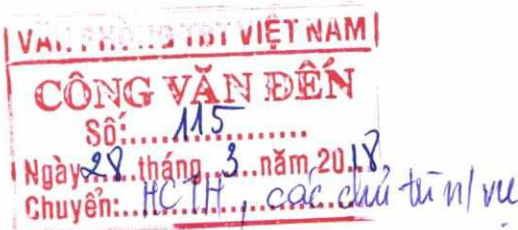 VĂN PHÒNG TBT VIỆT NAM
CÔNG VĂN ĐẾN
Số:....115............
Ngày 28 tháng 3 năm 2018
Chuyển:...HCTH, các chủ trì n/vụ